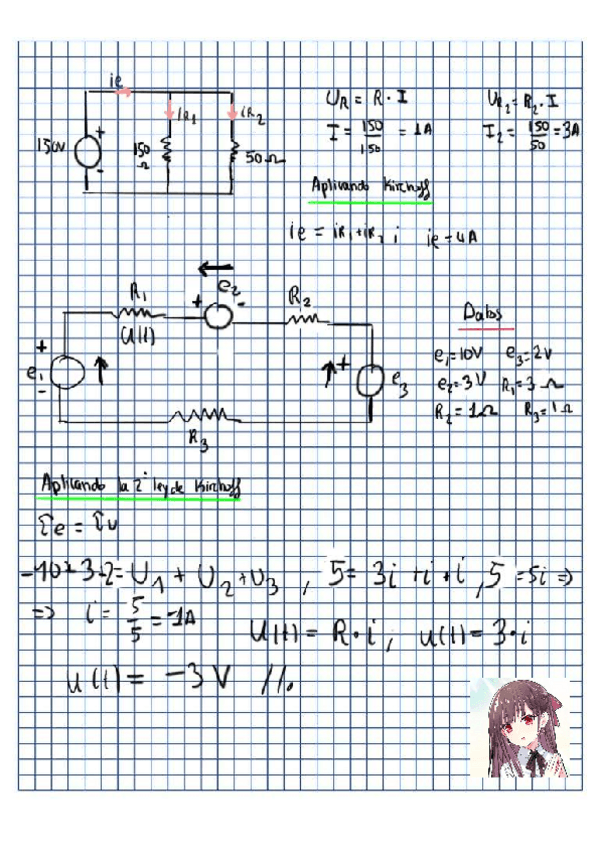 ie
150V
+
-
iR1
150 Ω
iR2
50Ω
UR = R · I
I = 150/150 = 1A
UR2 = R2 · I
I2 = 150/50 = 3A
Aplicando Kirchoff
ie = iR1 + iR2 ; ie = 4A
R1
U(t)
+
e2
-
R2
+
e1
-
+
e3
R3
Datos
e1=10V e3=2V
e2=3V R1=3Ω
R2=1Ω R3=1Ω
Aplicando la 2ª ley de Kirchoff
Σe = Σu
-10+3+2= U1 + U2 + U3 , 5= 3i +i+i , 5=5i =>
=> i = 5/5 = -1A
U(t) = R·i , u(t) = 3·i
u(t) = -3V //.